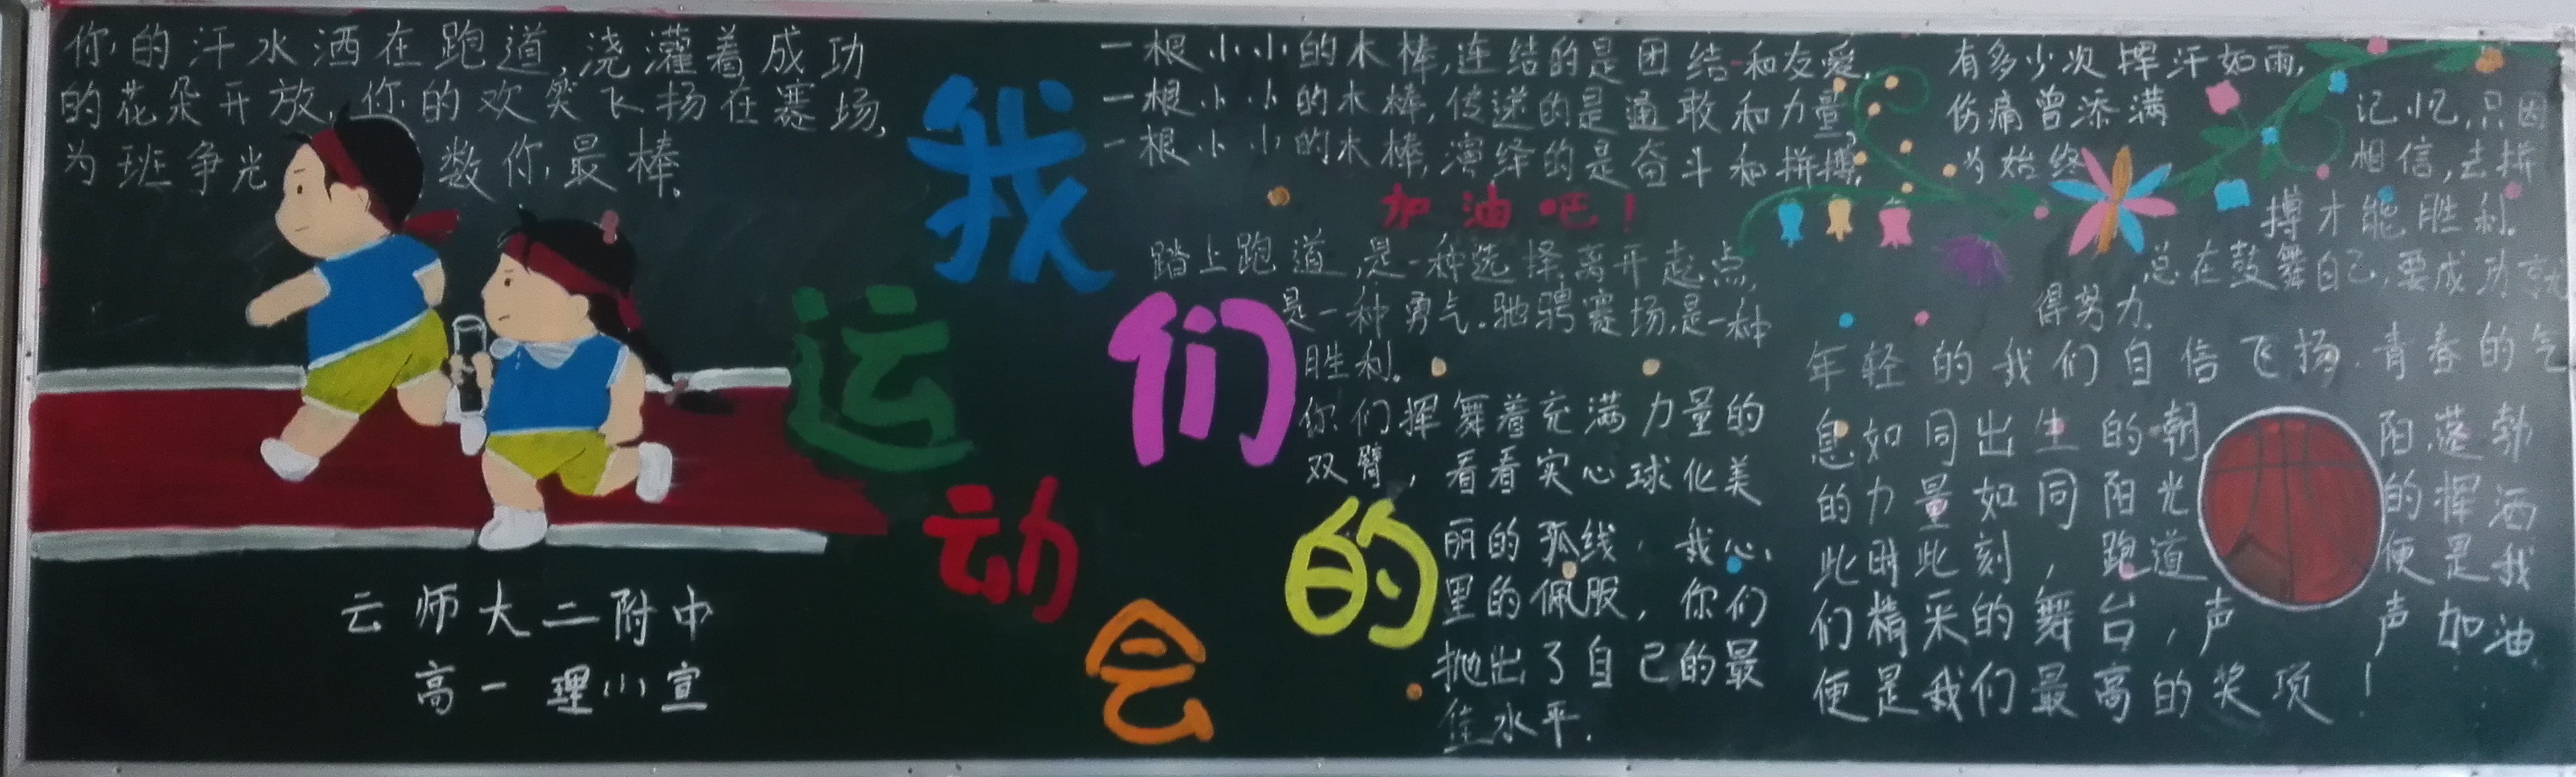 你的汗水洒在跑道,浇灌着成功
的花朵开放,你的欢笑飞扬在赛场,
为班争光 数你最棒.
云师大二附中
高一理小宣
我们的
运动会
一根小小的木棒,连结的是团结和友爱,
一根小小的木棒,传递的是通敢和力量,
一根小小的木棒,演绎的是奋斗和拼搏,
加油吧!
踏上跑道,是一种选择.离开起点,
是一种勇气.驰骋赛场,是一种
胜利.
你们挥舞着充满力量的
双臂,看看实心球化美
丽的弧线,我心
里的佩服,你们
抛出了自己的最
佳水平.
有多少次挥汗如雨,
伤痛曾添满
记忆,只因
为始终
相信,去拼
搏才能胜利.
总在鼓舞自己,要成功就
得努力.
年轻的我们自信飞扬.青春的气
息如同出生的朝阳,蓬勃
的力量如同阳光的挥洒
此时此刻,跑道便是我
们精采的舞台,声声加油
便是我们最高的奖项!